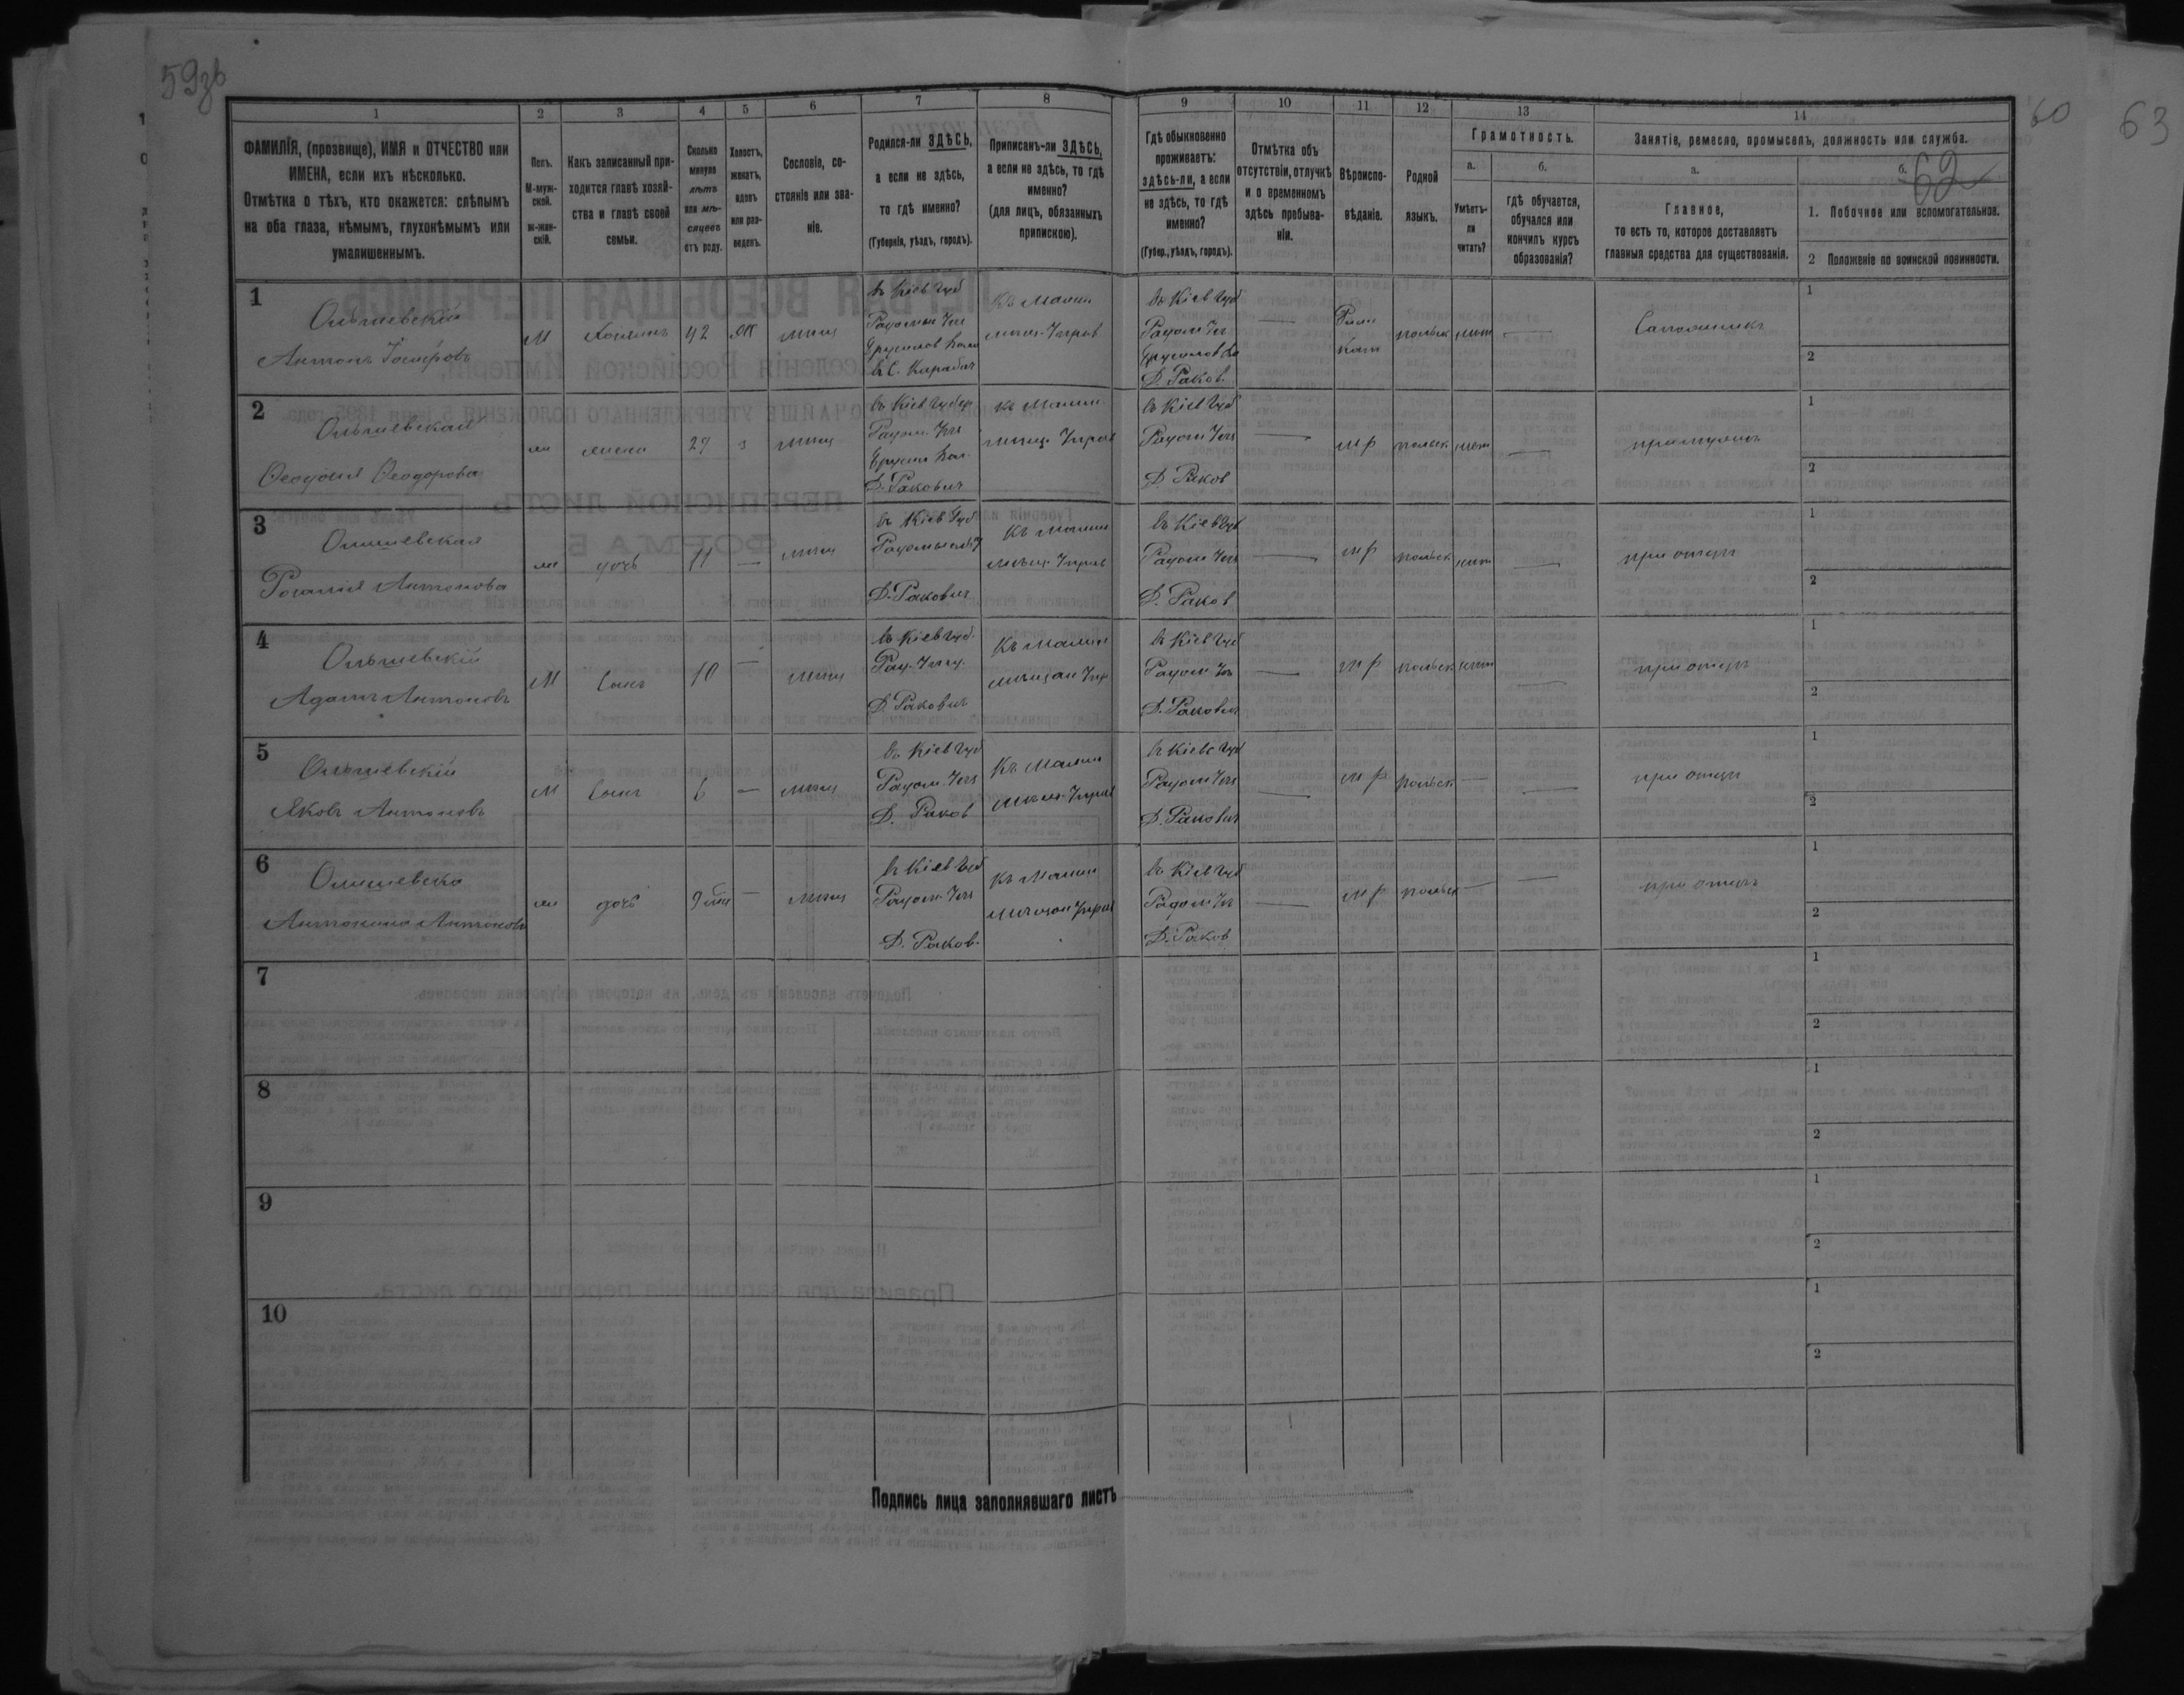 59зв
60
63
62
1
2
3
4
5
6
7
8
9
10
11
12
13
14
ФАМИЛІЯ, (прозвище), ИМЯ и ОТЧЕСТВО или
ИМЕНА, если ихъ нѣсколько.
Отмѣтка о тѣхъ, кто окажется: слѣпымъ
на оба глаза, нѣмымъ, глухонѣмымъ или
умалишеннымъ.
Полъ.
М-муж-
ской.
ж-жен-
скій.
Какъ записанный при-
ходится главѣ хозяй-
ства и главѣ своей
семьи.
Сколько
минуло
лѣтъ
или мѣ-
сяцевъ
отъ роду.
Холостъ,
женатъ,
вдовъ
или раз-
веденъ.
Сословіе, со-
стояніе или зва-
ніе.
Родился-ли ЗДѢСЬ,
а если не здѣсь,
то гдѣ именно?
(Губернія, уѣздъ, городъ).
Приписанъ-ли ЗДѢСЬ,
а если не здѣсь, то гдѣ
именно?
(для лицъ, обязанныхъ
припискою).
Гдѣ обыкновенно
проживаетъ:
здѣсь-ли, а если
не здѣсь, то гдѣ
именно?
(Губер., уѣздъ, городъ).
Отмѣтка объ
отсутствіи, отлучкѣ
и о временномъ
здѣсь пребыва-
ніи.
Вѣроиспо-
вѣданіе.
Родной
языкъ.
Грамотность.
а.
Умѣетъ-
ли
читать?
б.
гдѣ обучается,
обучался или
кончилъ курсъ
образованія?
Занятіе, ремесло, промыселъ, должность или служба.
а.
Главное,
то есть то, которое доставляетъ
главныя средства для существованія.
б.
1. Побочное или вспомогательное.
2 Положеніе по воинской повинности.
1
Ольшевскій
Антонъ
М
Хозяинъ
42
жт
мѣщ
въ Кіев губ
Радомыс
въ С.
Къ Малин
мѣщ. Управ
въ Кіев губ
Радом
Д. Раков.
Рим
Кат
польск
нѣт
Сапожникъ
1
2
2
Ольшевская
Феодосія Феодорова
жена
з
мѣщ
въ Кіев губер
Радом.
Д. Ракович
къ Малин
мѣщ. Управ
въ Кіев губ
Радом
Д. Раков
польск
нѣт
при мужѣ
1
2
3
Ольшевская
Розалія Антонова
дочь
11
мѣщ
въ Кіев Губ
Радомысль
Д. Ракович
Къ Малин
мѣщ. Управ
въ Кіев губ
Радом
Д. Раков
польск
нѣт
при отцѣ
1
2
4
Ольшевскій
Адамъ Антоновъ
М
Сынъ
10
мѣщ
въ Кіев губ.
Рад.
Д. Ракович
Къ Малин
мѣщан Упр
въ Кіев губ
Радом
Д. Ракович
польск
нѣт
при отцѣ
1
2
5
Ольшевскій
Яковъ Антоновъ
М
Сынъ
6
мѣщ
въ Кіев губ
Радом.
Д. Раков
Къ Малин
мѣщ. Управ
въ Кіев губ
Радом
Д. Ракович
польск
при отцѣ
1
2
6
Ольшевска
Антонина Антонова
дочь
мѣщ
въ Кіев губ
Радом.
Д. Раков.
Къ Малин
мѣщан Управ
въ Кіев губ
Радом
Д. Раков
польск
при отцѣ
1
2
7
1
2
8
1
2
9
1
2
10
1
2
Подпись лица заполнявшаго листъ